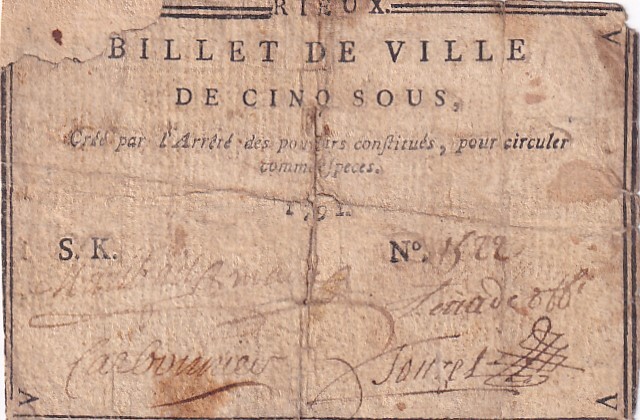 RIEUX.
BILLET DE VILLE
DE CINQ SOUS,
Créé par l'Arrêté des pouvoirs constitués, pour circuler
comme especes.
1791.
S. K. Nº. 1522
Carbonnier Touzet